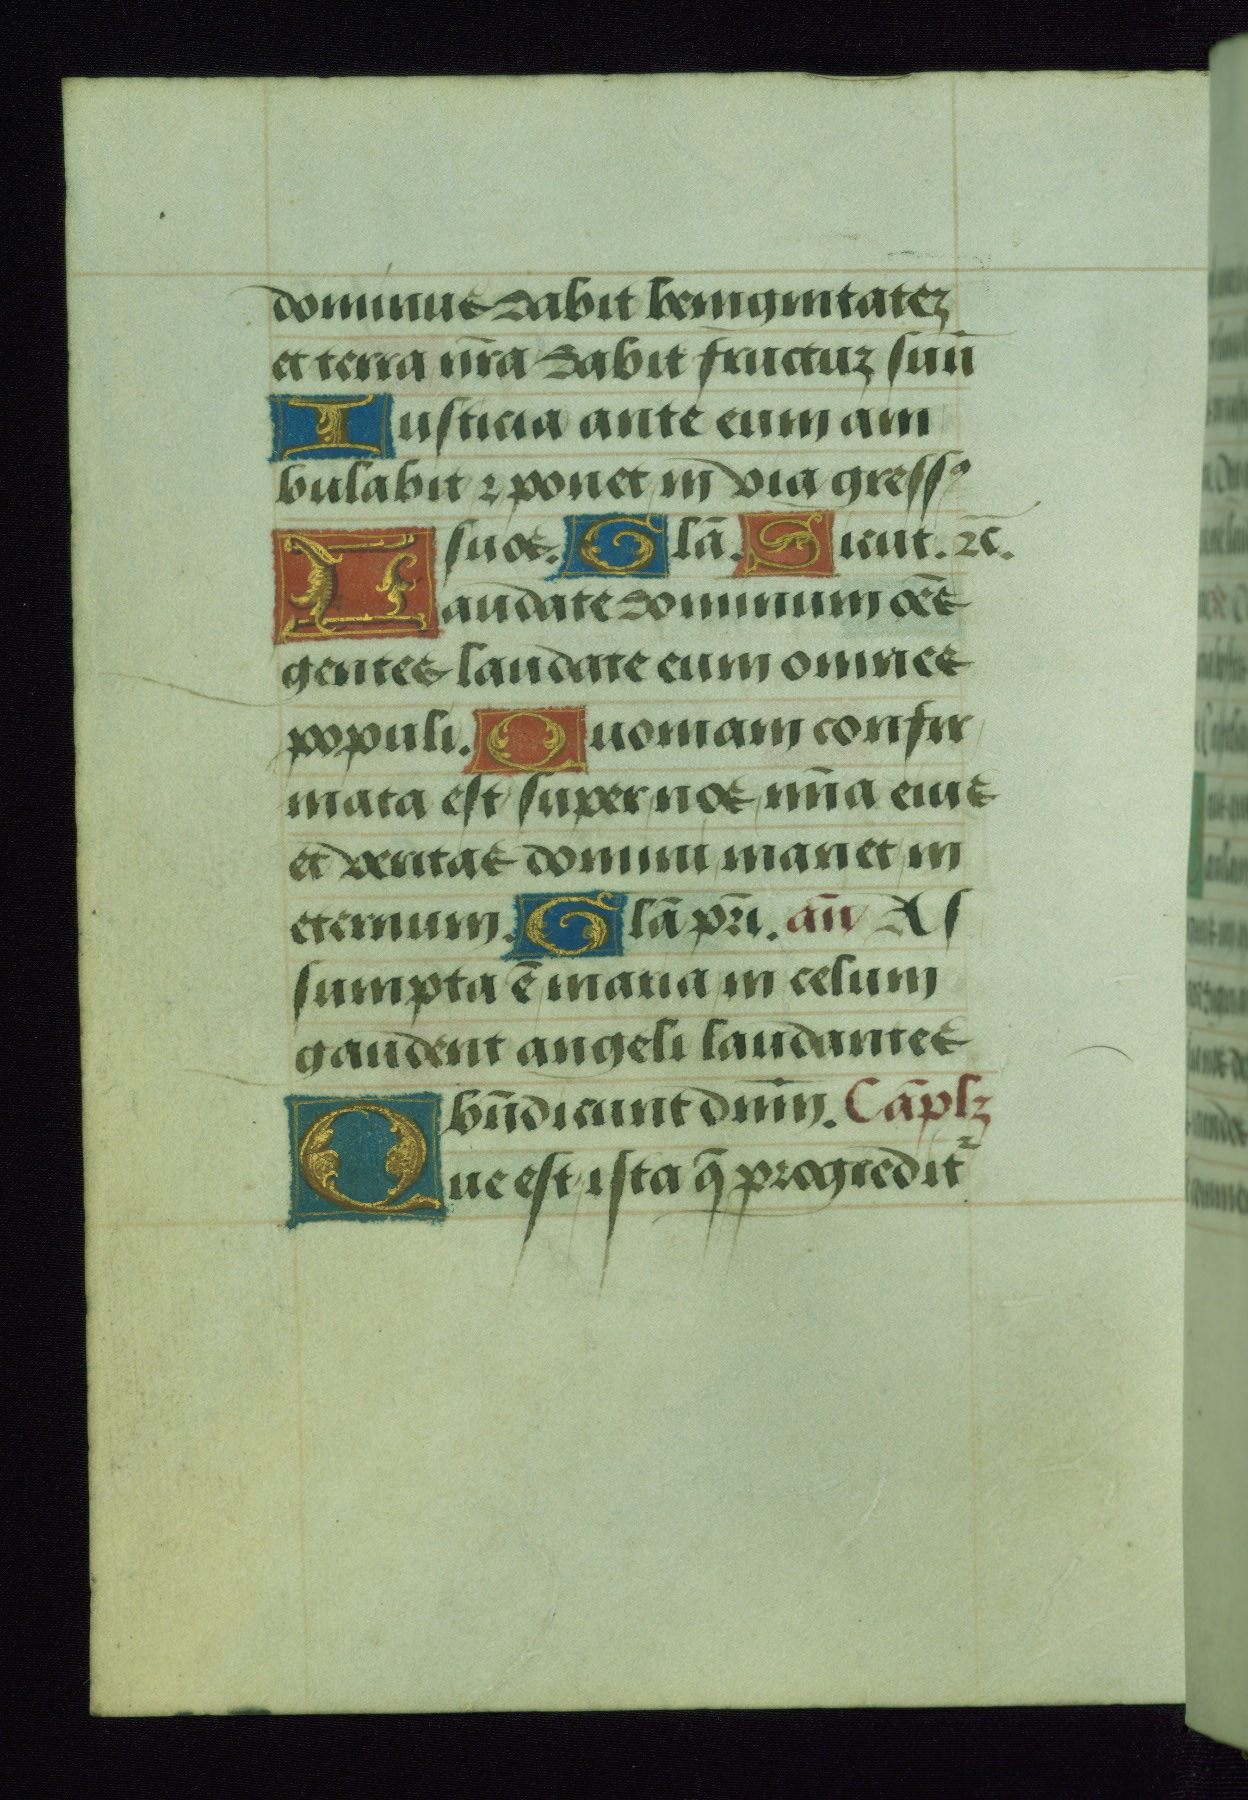 dominus dabit benignitatez
et terra nr̄a dabit fructuz suū
Iusticia ante eum am
bulabit ⁊ ponet in via gressꝰ
suos. Glā. Sicut. ⁊c̄.
Laudate dominum oēs
gentes laudate eum omnes
populi. Quoniam confir
mata est super nos mīa eius
et veritas domini manet in
eternum. Glā pr̄i. an̄ As
sumpta ē maria in celum
gaudent angeli laudantes
bn̄dicunt dnm̄. Cāplꝫ
Que est ista q̄ progredit᷑